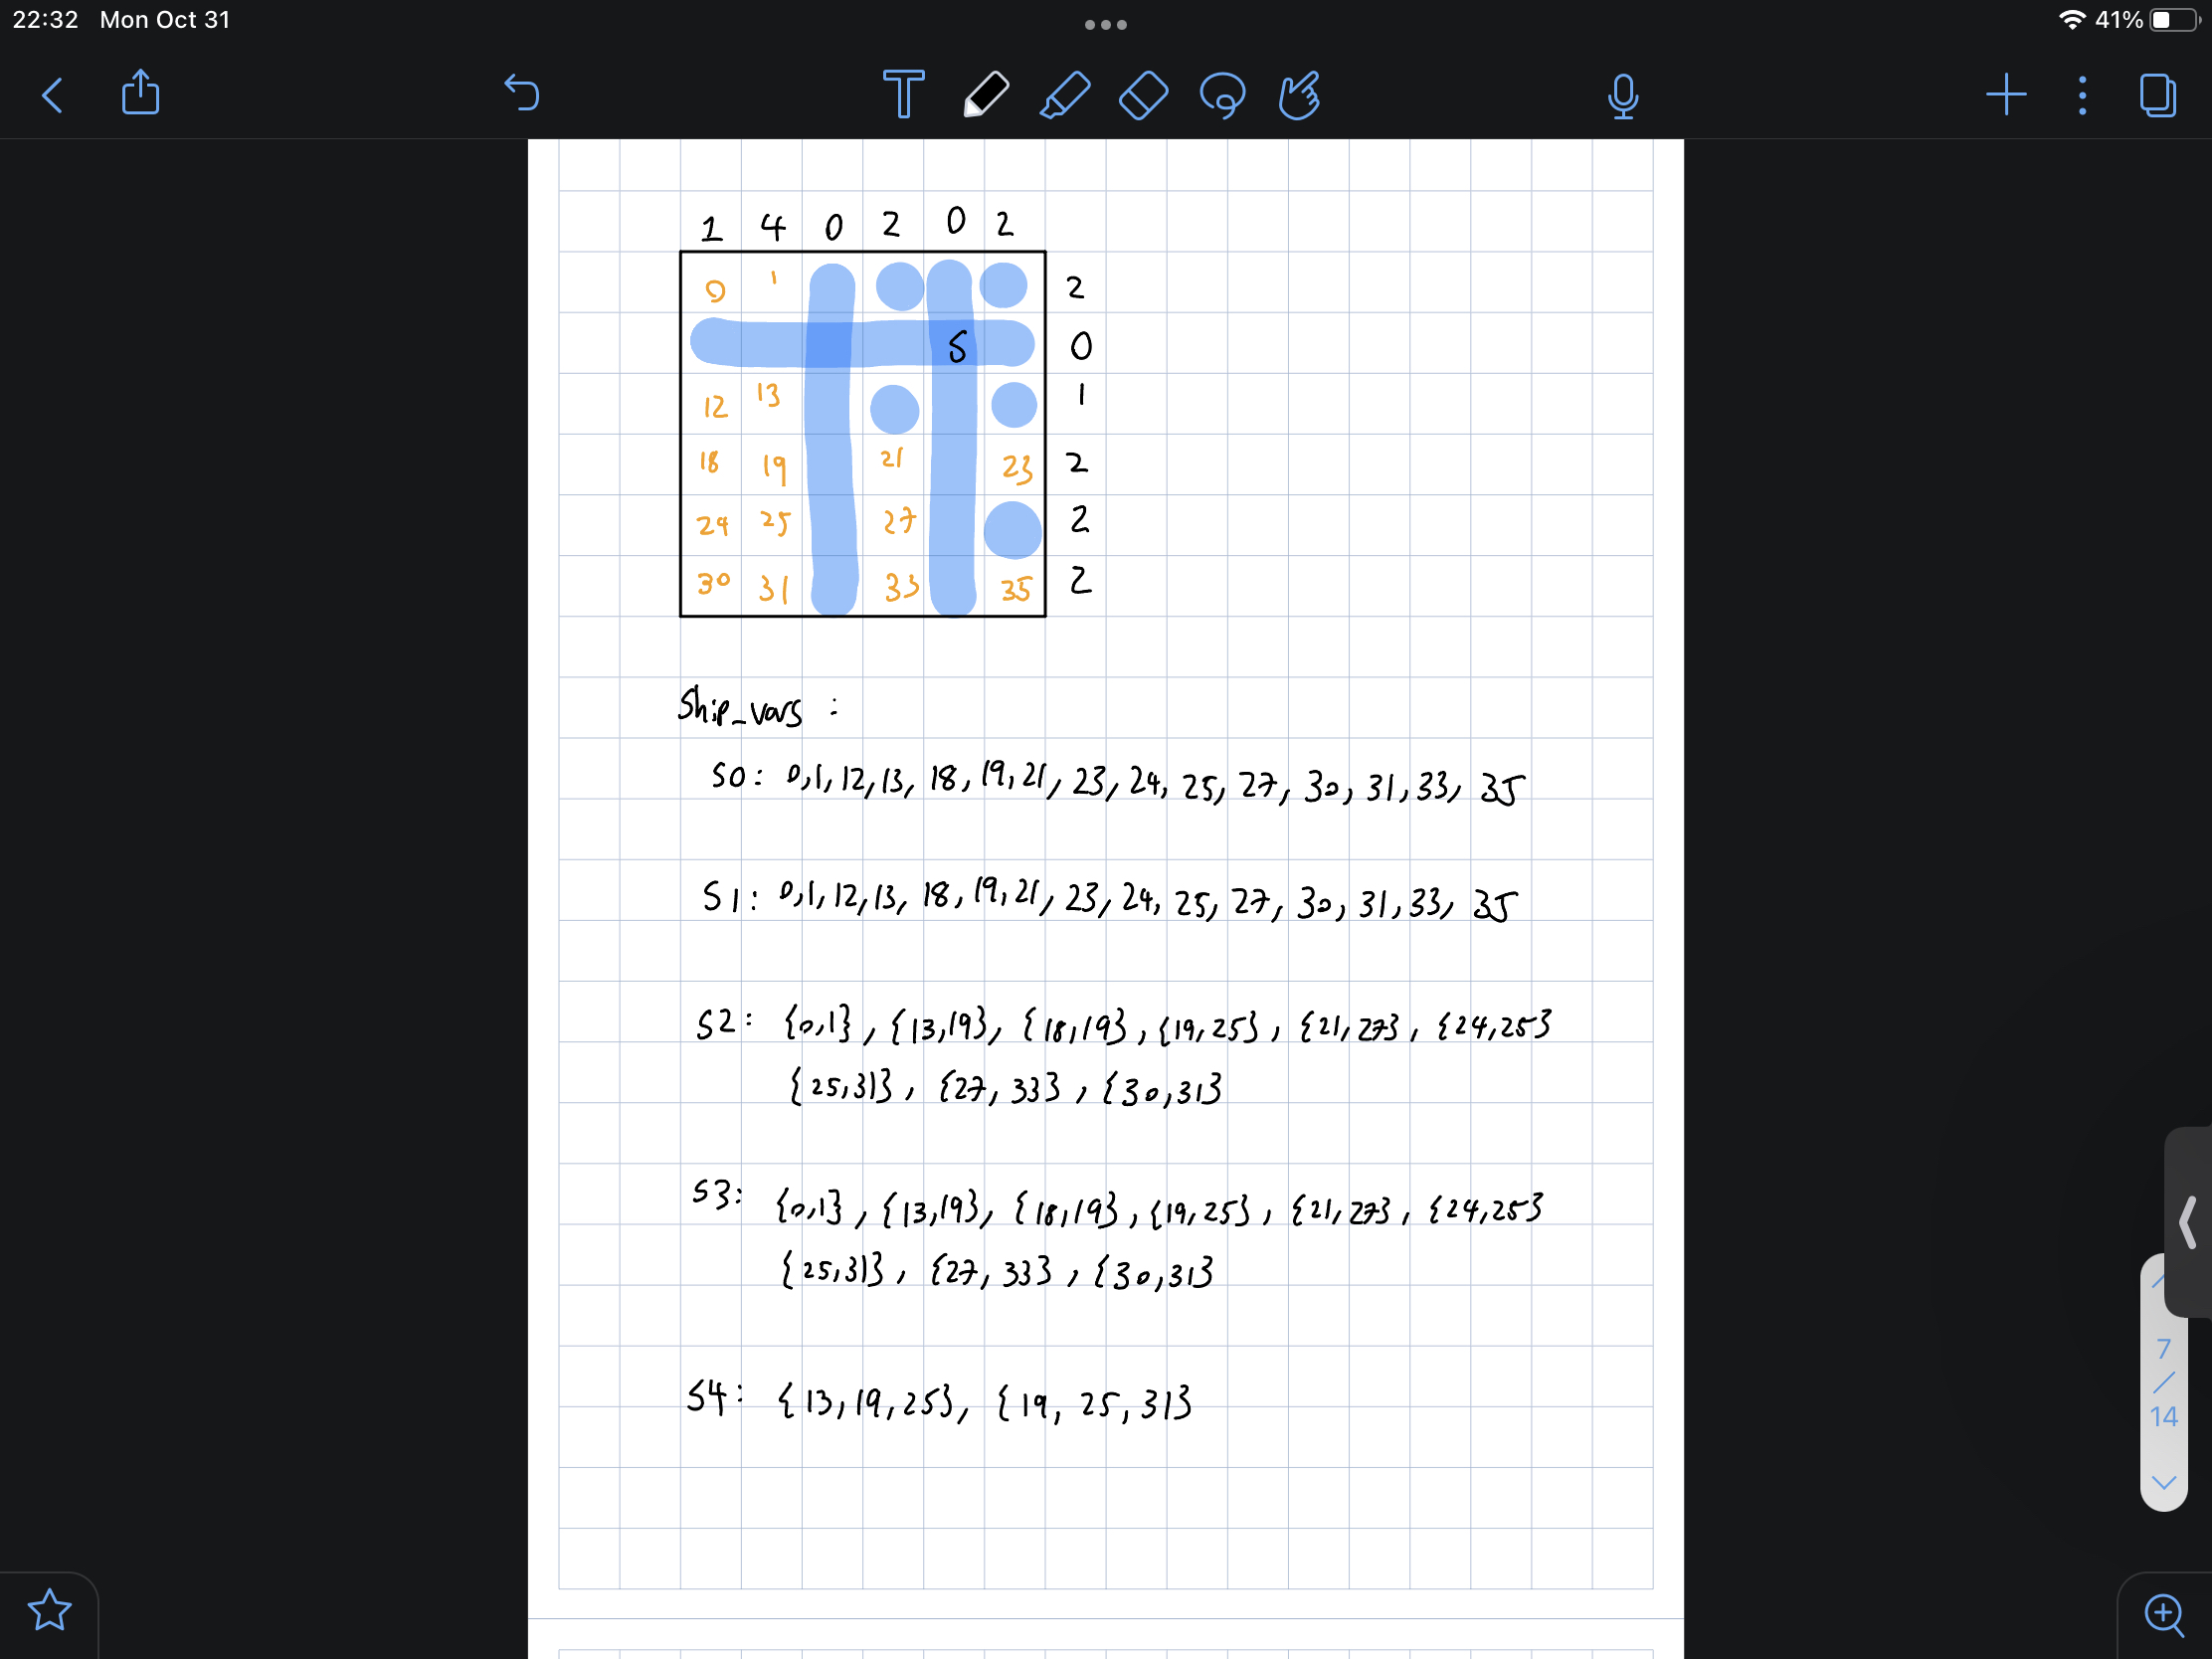 22:32 Mon Oct 31
41%
T
1 4 0 2 0 2
0 1 2
S 0
12 13 1
18 19 21 23 2
24 25 27 2
30 31 33 35 2
Ship_vars :
S0: 0,1,12,13, 18,19,21,23,24,25,27,30,31,33,35
S1: 0,1,12,13, 18,19,21,23,24,25,27,30,31,33,35
S2: {0,1}, {13,19}, {18,19}, {19,25}, {21,27}, {24,25}
{25,31}, {27,33}, {30,31}
S3: {0,1}, {13,19}, {18,19}, {19,25}, {21,27}, {24,25}
{25,31}, {27,33}, {30,31}
S4: {13,19,25}, {19,25,31}
7
/
14